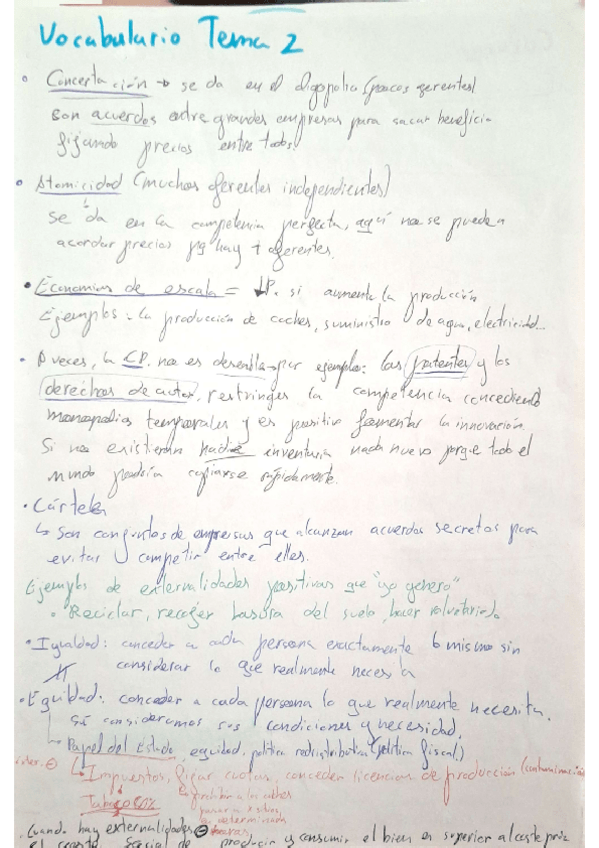 Vocabulario Tema 2
Concertación → se da en el oligopolio (pocos oferentes)
son acuerdos entre grandes empresas para sacar beneficio
fijando precios entre todos.
Atomicidad (muchos oferentes independientes)
Se da en la competencia perfecta, aquí no se pueden
acordar precios pq hay + oferentes.
Economías de escala = ↓P. si aumenta la producción
Ejemplos: la producción de coches, suministro de agua, electricidad...
A veces, la CP. no es deseable por ejemplo: las patentes y los
derechos de autor, restringen la competencia concediendo
monopolios temporales y es positivo fomentar la innovación.
Si no existieran nadie inventaría nada nuevo porque todo el
mundo podría copiarse rápidamente.
Cártels
↳ Son conjuntos de empresas que alcanzan acuerdos secretos para
evitar competir entre ellas.
Ejemplos de externalidades positivas que "yo genero"
Reciclar, recojer basura del suelo, hacer voluntariado
Igualdad: conceder a cada persona exactamente lo mismo sin
considerar lo que realmente necesita
Equidad: conceder a cada persona lo que realmente necesita.
sí consideramos sus condiciones y necesidad.
↳ Papel del Estado, equidad, política redistributiva (política fiscal)
↳ Impuestos, fijar cuotas, conceden licencias de producción (contaminación)
Cuando hay externalidades ⊖
el coste social de producir y consumir el bien es superior al coste priv